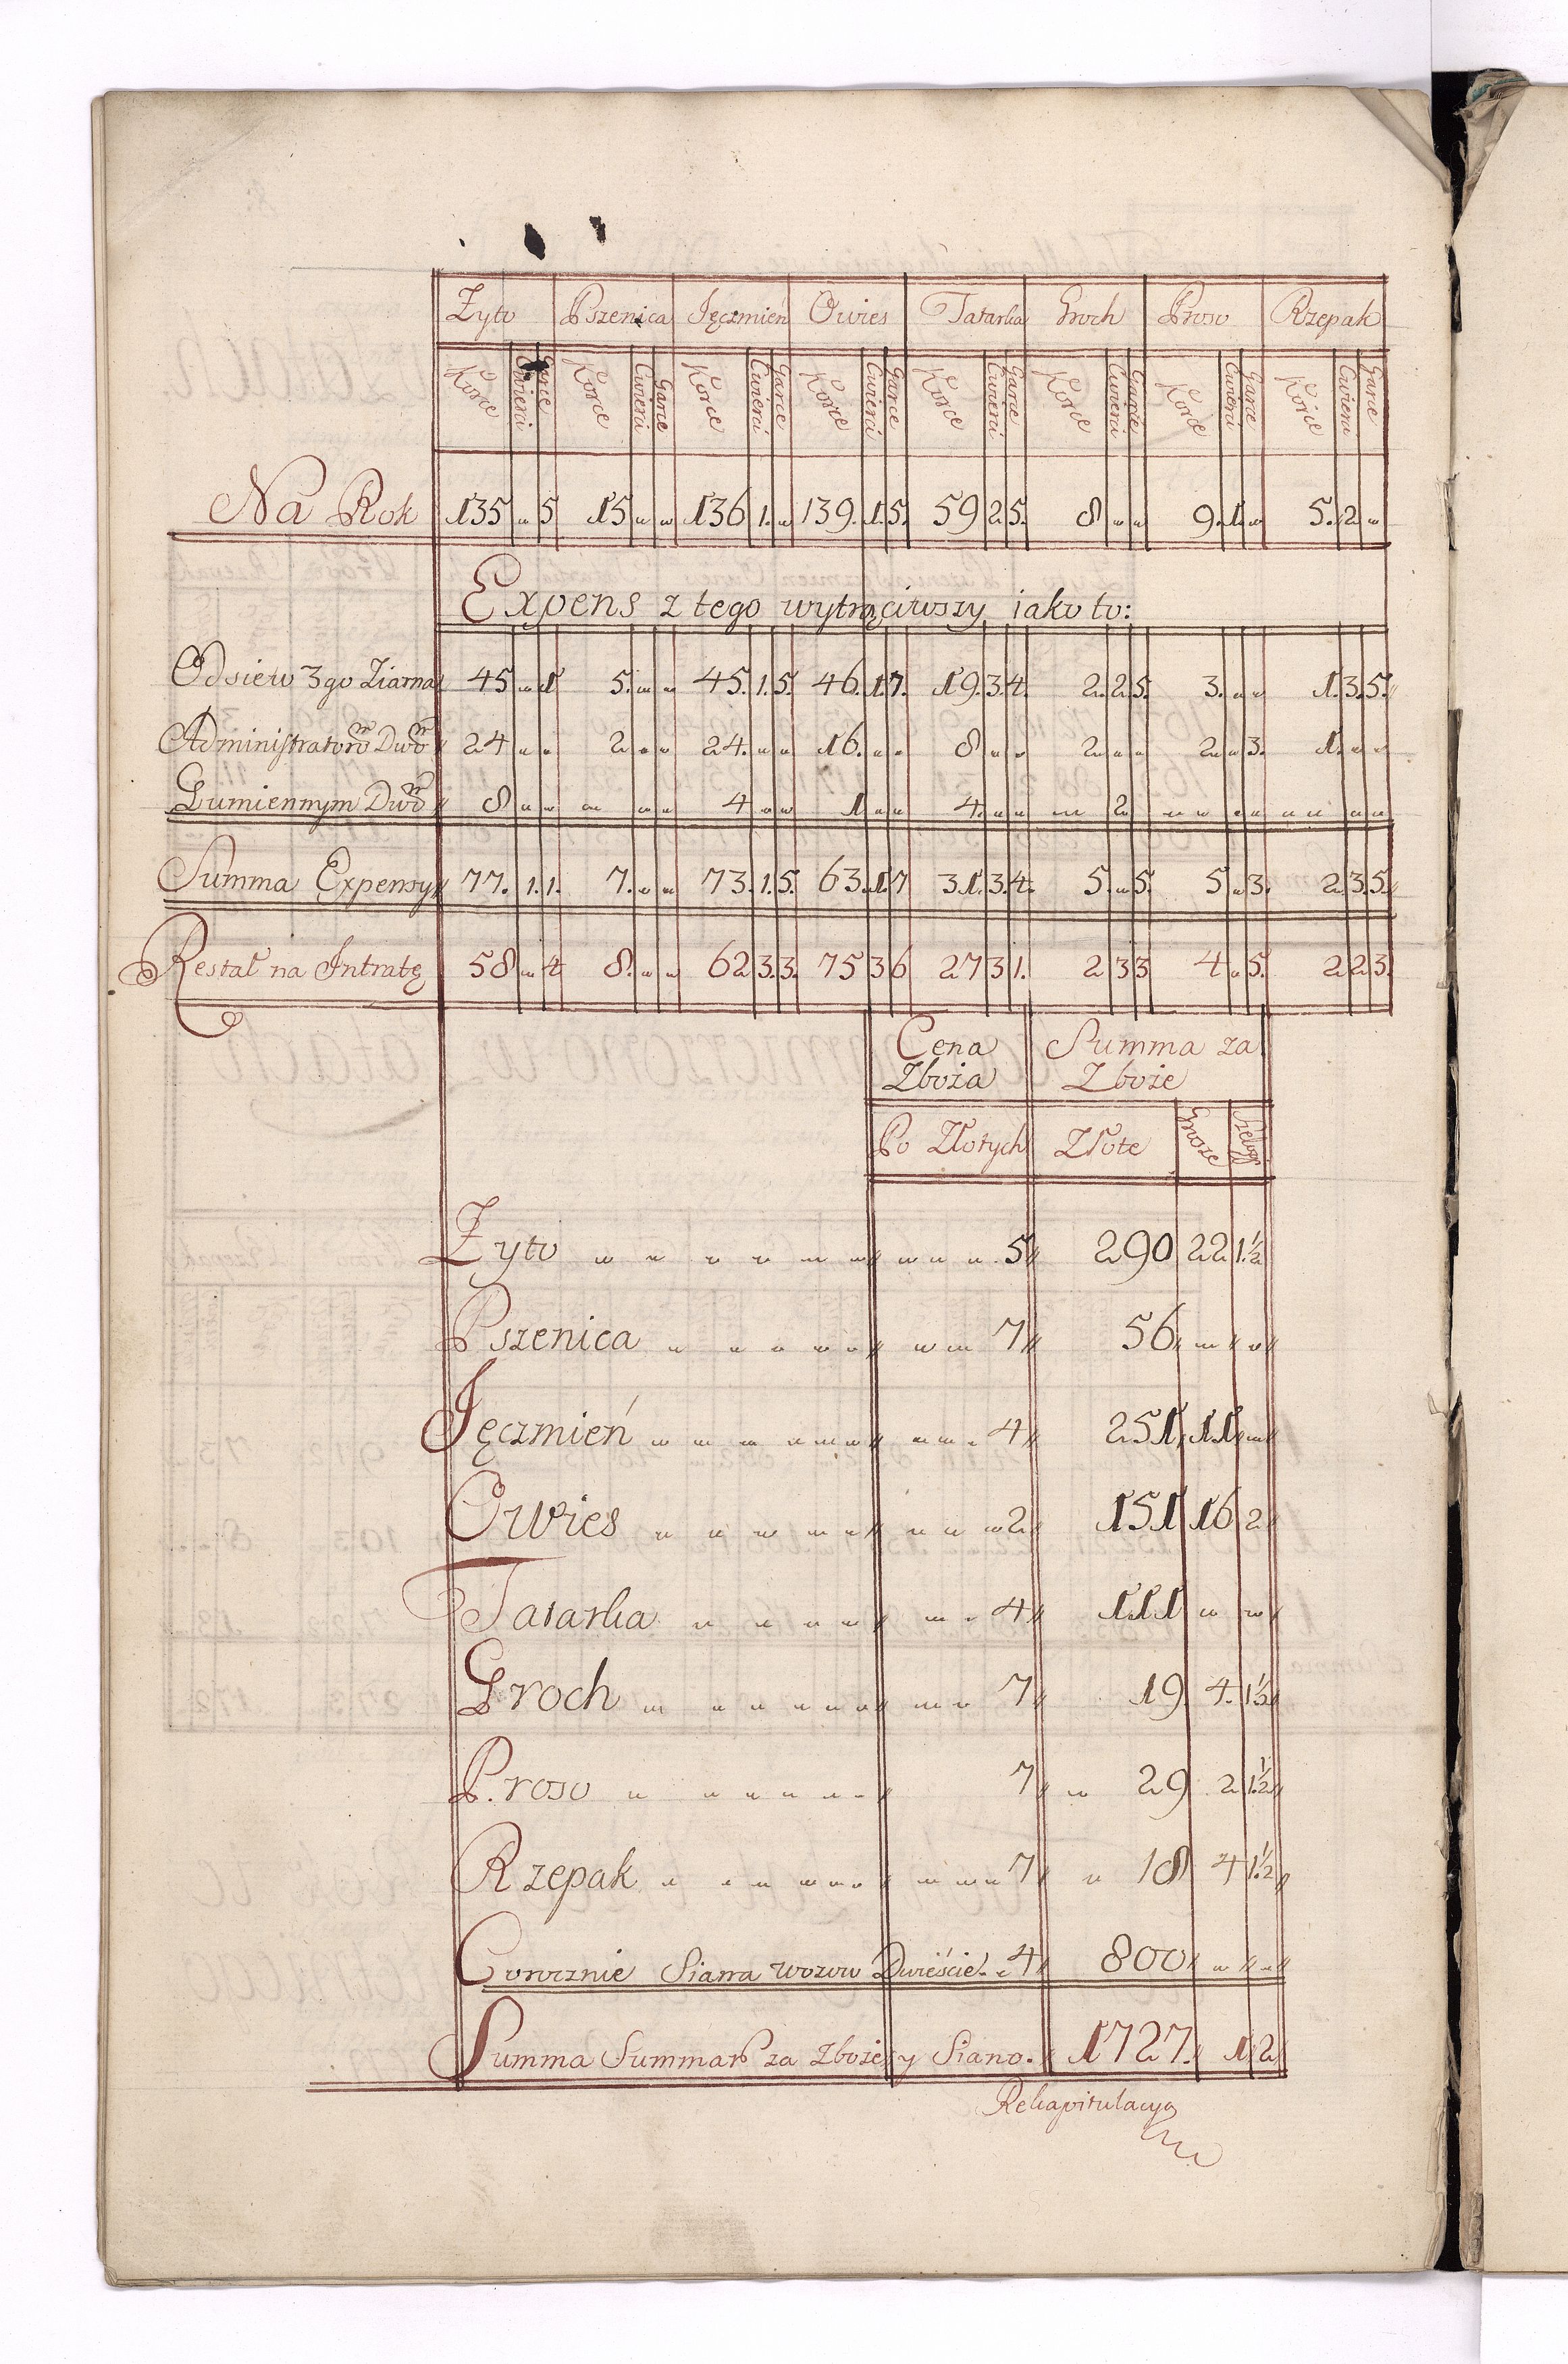 Zyto Pszenica Jęczmień Owies Tatarka Groch Proso Rzepak
Korce Cwierci Garce Korce Cwierci Garce Korce Cwierci Garce Korce Cwierci Garce Korce Cwierci Garce Korce Cwierci Garce Korce Cwierci Garce Korce Cwierci Garce
Na Rok 135 „ 5 15 „ „ 136 1. „ 139. 1. 5. 59 2 5. 8 „ „ 9. 1. „ 5. 2 „
Expens z tego wytrąciwszy iako to:
Odsiew 3go Ziarna 45 „ 1 5. „ „ 45. 1. 5. 46. 1. 7. 19. 3. 4. 2. 2. 5. 3. „ „ 1. 3. 5.
Administratorō Dwō 24 „ „ 2 „ „ 24. „ „ 16. „ „ 8 „ „ 2 „ „ 2 „ 3. 1. „ „
Gumiennym Dwō 8 „ „ „ „ „ 4 „ „ 1 „ „ 4. „ „ „ 2 „ „ „ „ „ „ „
Summa Expensy 77. 1. 1. 7. „ „ 73. 1. 5. 63. 1. 7 31. 3. 4. 5. „ 5. 5 „ 3. 2. 3. 5.
Restat na Intratę 58 „ 4 8. „ „ 62 3. 3. 75 3 6 27 3 1. 2 3 3 4 „ 5. 2 2 3.
Cena Summa za
Zboża Zboże
Po Złotych Złote Grosze Szelągi
Zyto „ „ „ „ „ „ „ „ „ 5 290 22 1.½
Pszenica „ „ „ „ „ „ „ 7 56 „ „
Jęczmień „ „ „ „ „ „ „ „ 4 251 11 „
Owies „ „ „ „ „ „ „ „ 2 151 16 2
Tatarka „ „ „ „ „ „ „ 4 111 „ „
Groch „ „ „ „ „ „ „ „ 7 19 4. 1½
Proso „ „ „ „ „ „ 7 „ 29 2 1.½
Rzepak „ „ „ „ „ „ „ „ 7 „ 18 4 1.½
Corocznie Siana wozow Dwieście „ 4 800 „ „
Summa Summar̃ za zboże y Siano. 1727. 1 2
Rekapitulacya